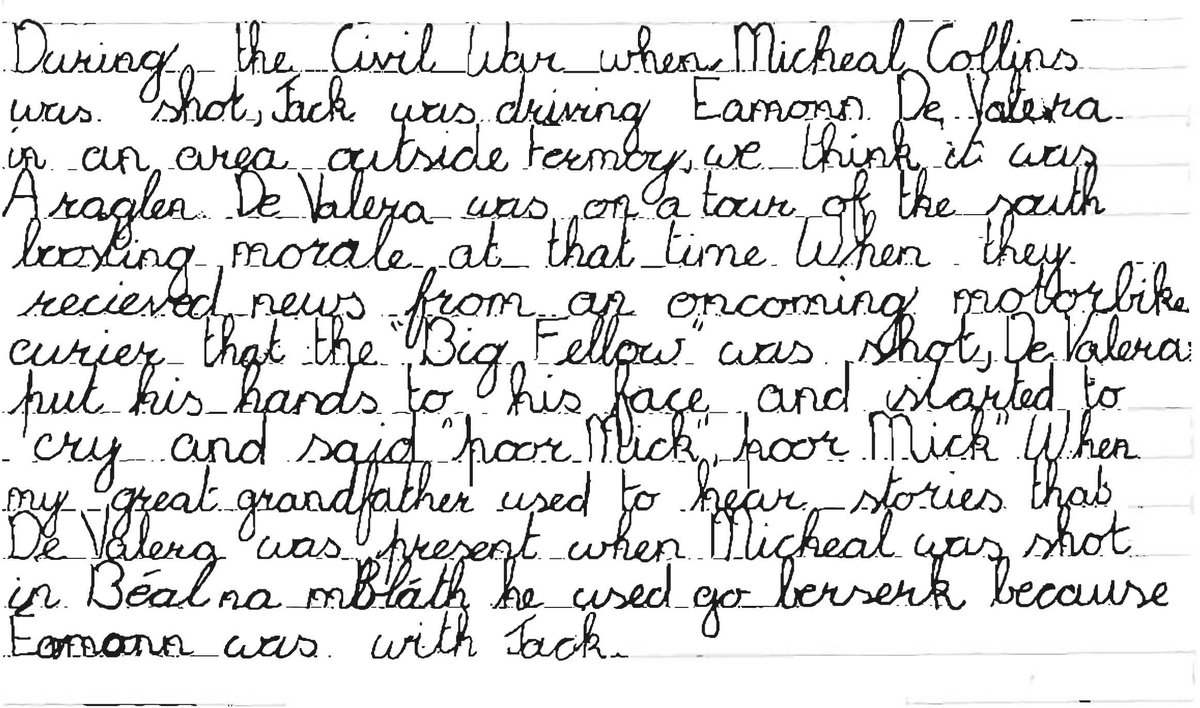 During the Civil War when Micheal Collins
was shot, Jack was driving Eamonn De Valera
in an area outside Fermoy, we think it was
Araglen. De Valera was on a tour of the south
boosting morale at that time When they
recieved news from an oncoming motorbike
curier that the "Big Fellow" was shot, De Valera
put his hands to his face and started to
cry and said "poor Mick", poor Mick" When
my great grandfather used to hear stories that
De Valera was present when Micheal was shot
in Béal na mBláth he used go berserk because
Eamonn was with Jack.